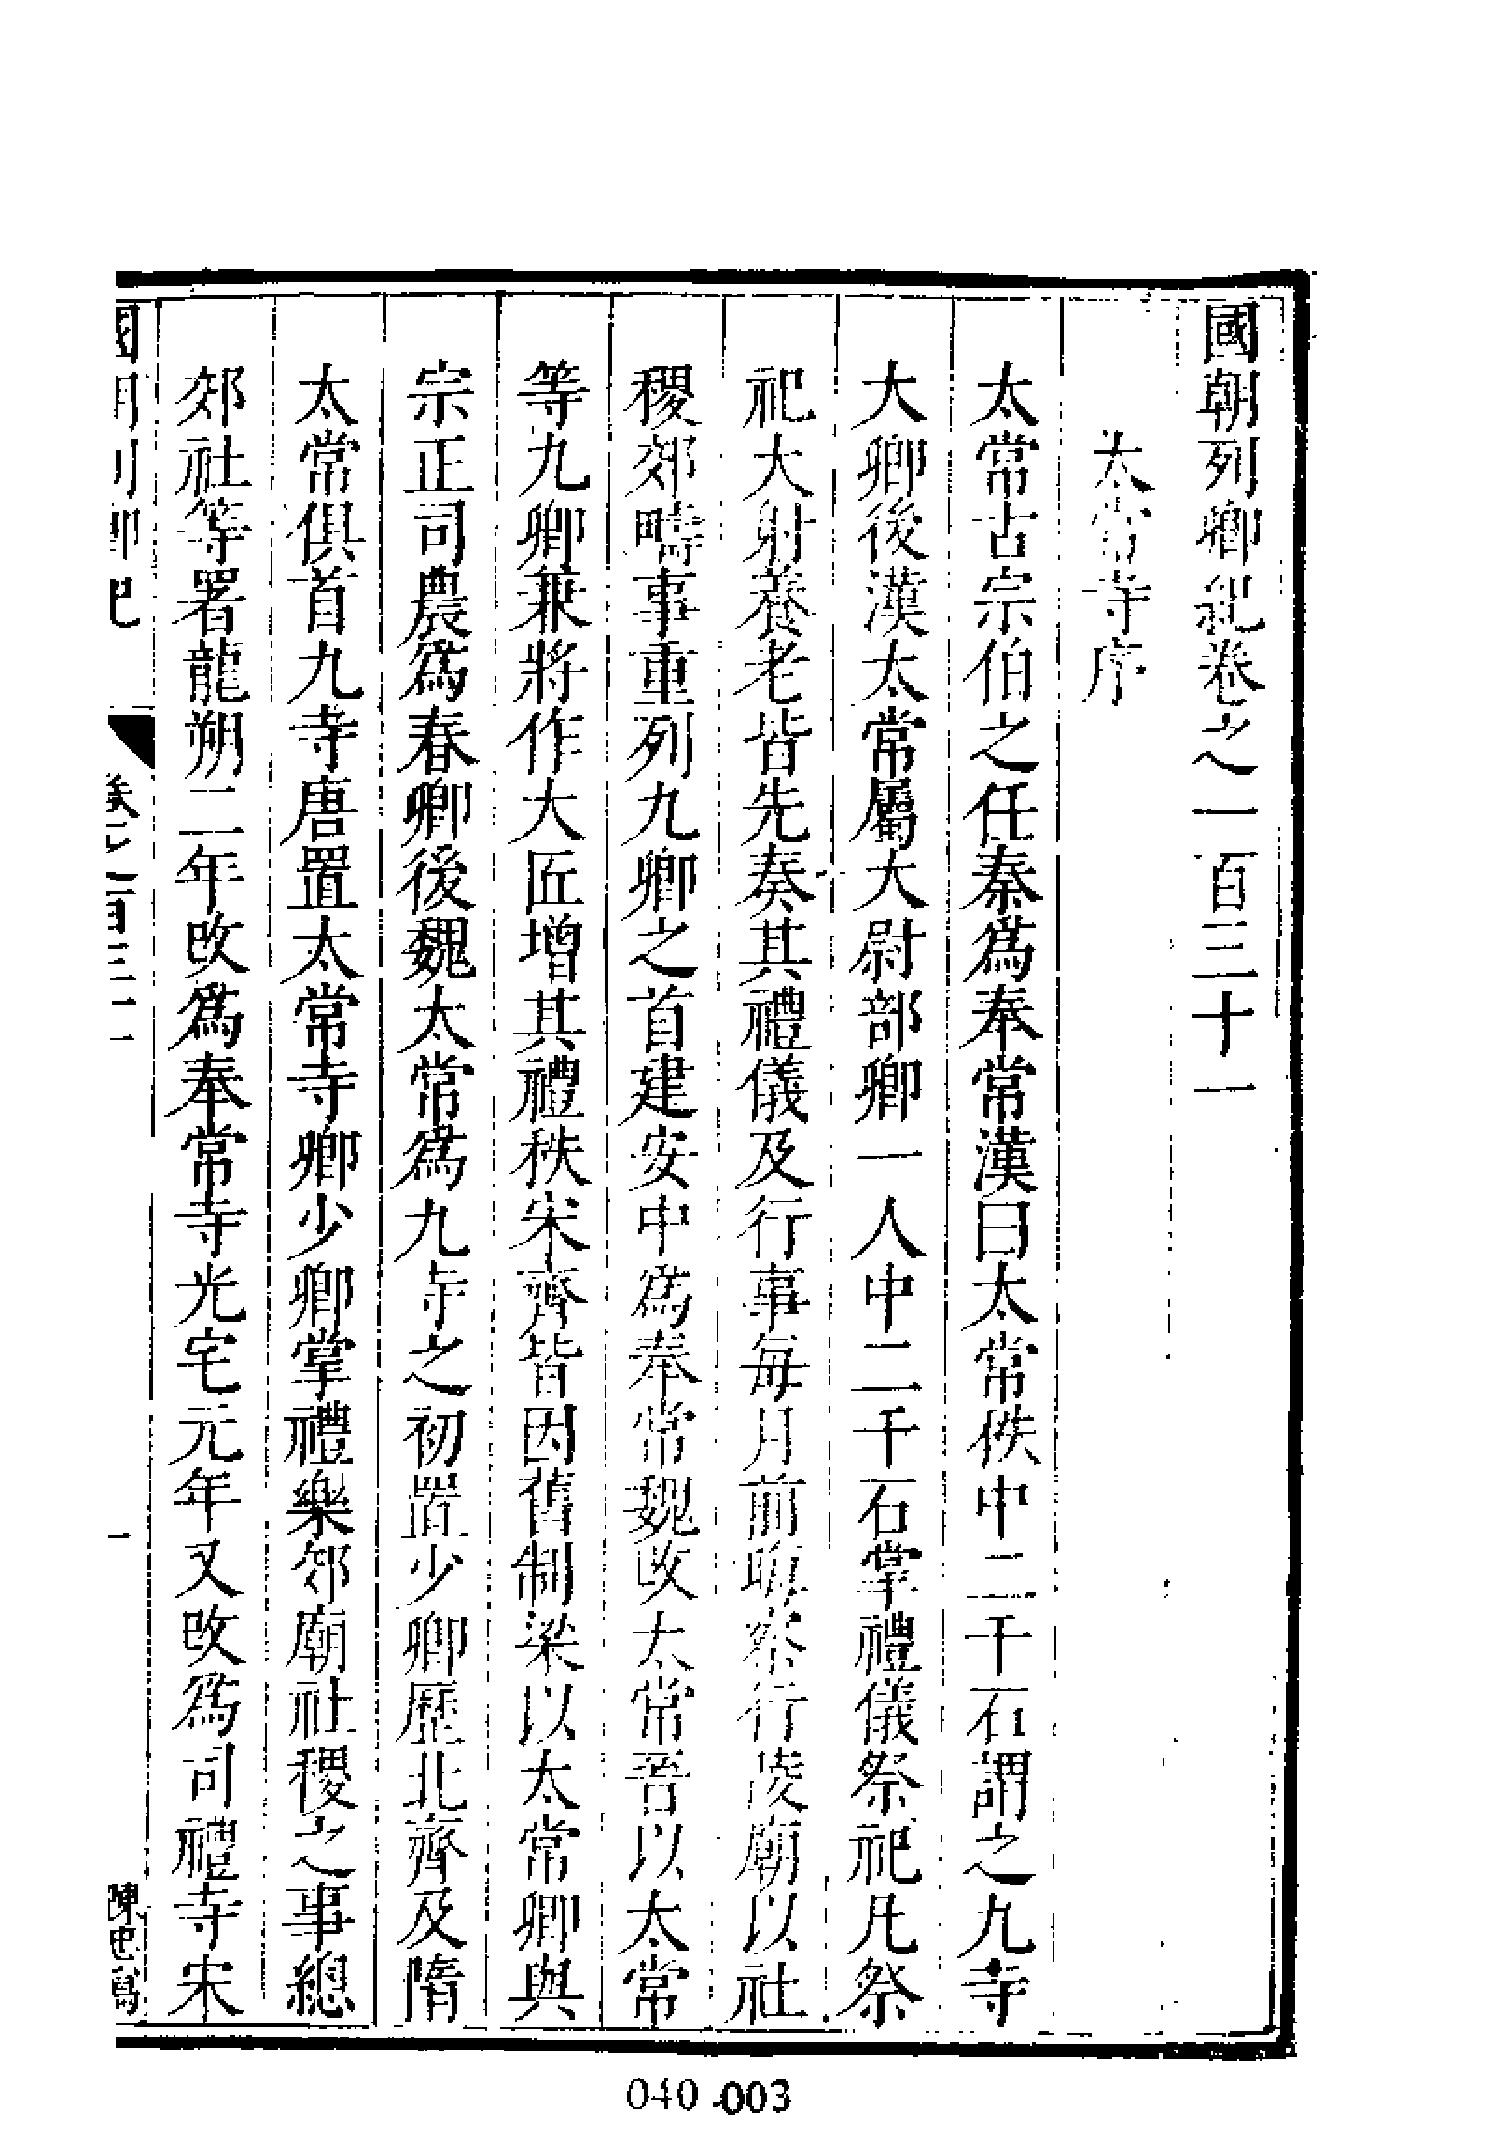 國朝列卿紀卷之一百三十一
太常寺序
太常古宗伯之任秦爲奉常漢曰太常秩中二千石謂之九寺
大卿後漢太常屬大尉部卿一人中二千石掌禮儀祭祀凡祭
祀大射養老皆先奏其禮儀及行事每月前晦察行陵廟以社
稷郊畤事重列九卿之首建安中爲奉常魏改太常晉以太常
等九卿兼將作大匠增其禮秩宋齊皆因舊制梁以太常卿與
宗正司農爲春卿後魏太常爲九寺之初置少卿歷北齊及隋
太常俱首九寺唐置太常寺卿少卿掌禮樂郊廟社稷之事總
郊社等署龍朔二年改爲奉常寺光宅元年又改爲司禮寺宋
國朝列卿紀
卷之一百三十一
一
040-003